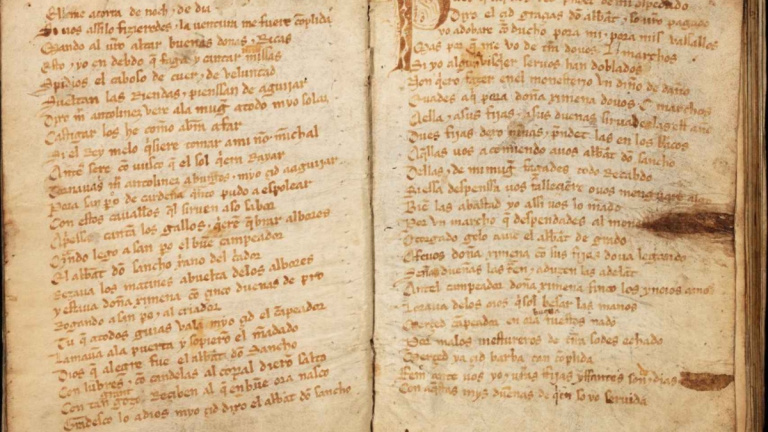 Ellame acorra de noch τ de dia
Si vos assilo fizieredes τ la ventura me fuere cōplida
Mando al vr̄o altar buenas donas τ Ricas
Esto yo en debdo q̄ faga y cantar missas
Spidios el caboso de cuer τ de veluntad
Sueltan las Riendas τ pienssan de aguijar
Dixo mȓ antolinez vere ala mugȓ atodo myo solaz
Castigar los he como abrā a far
Si el Rey melo q̄siere tomar ami nō mīchal
Antes sere cō vusco q̄ el sol q̄era Rayar
Tornauas mȓ antolinez aburgos τ myo çid aaguijar
Pora san pō de cardeña q̄nto pudo a espolear
Con estos cauallos q̄l siruen aso sabor
Apriessa cantā los gallos τ q̄erē q̄brar albores
Q̄ndo lego a san pō el buē campeador
El abbat dō sancho xr̄ano del c̄ador
Rezaua los matines abuelta delos albores
y estaua doña ximena cō çinco dueñas de pro
Rogando a san pō τ al criador
Tu q̄ atodos guias val a myo çid el cāpeador
Lamauā ala puerta y sopierō el mādado
Dios q̄ alegre fue el abbat dō sancho
Con lubres τ cō candelas al corral dierō salto
Con tan grant gozo Reçiben al q̄ enbuē ora nasco
Gradesco lo adios myo çid dixo el abbat dō sancho
Dixo el çid graçias dō abbat τ so vr̄o pagado
yo adobare cō ducho pora mi τ pora mis vassallos
Mas por q̄ me vo de tr̄ra douos L marchos
Si yo algū visq̄ier seruos han doblados
Non q̄ero fazer enel monesterio vn diño de daño
Euades aq̄ pora doña ximena douos C marchos
Aella τ asus fijas τ asus dueñas siruadeslas est año
Dues fijas dexo niñas τ prēdet las en los braços
Aq̄llas vos acomiendo auos abbat dō sancho
Dellas τ de mi mugȓ fagades todo Recabdo
Si essa despenssa vos falleçiere ovos menguare algo
Biē las abastad yo assi vos lo mādo
Por vn marcho q̄ despendades al monesterio
Otorgado gelo auie el abbat de grado
Afeuos doña ximena cō sus fijas do va legando
Señas dueñas las traē τ aduzen las adelāt
Antel campeador doña ximena finco los ynoios amos
Loraua delos oios q̄sol besar las manos
Merçed cāpeador en ora buena fuestes nado
Por malos mestureros de tr̄ra sodes echado
Merçed ya çid barba tan cōplida
Fem ante vos yo τ ur̄as fijas yffantes son τ de dias
Con aq̄stas mys dueñas de q̄en so yo seruida